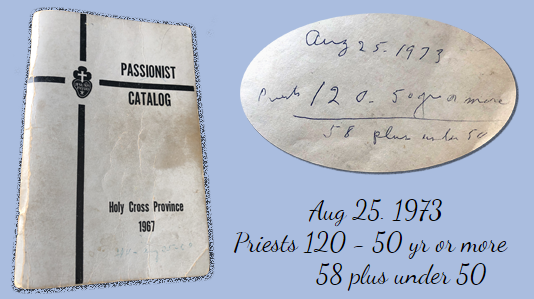 PASSIONIST
CATALOG
Holy Cross Province
1967
Aug 25. 1973
Priests 120 - 50 yr or more
58 plus under 50
Aug 25. 1973
Priests 120 - 50 yr or more
58 plus under 50